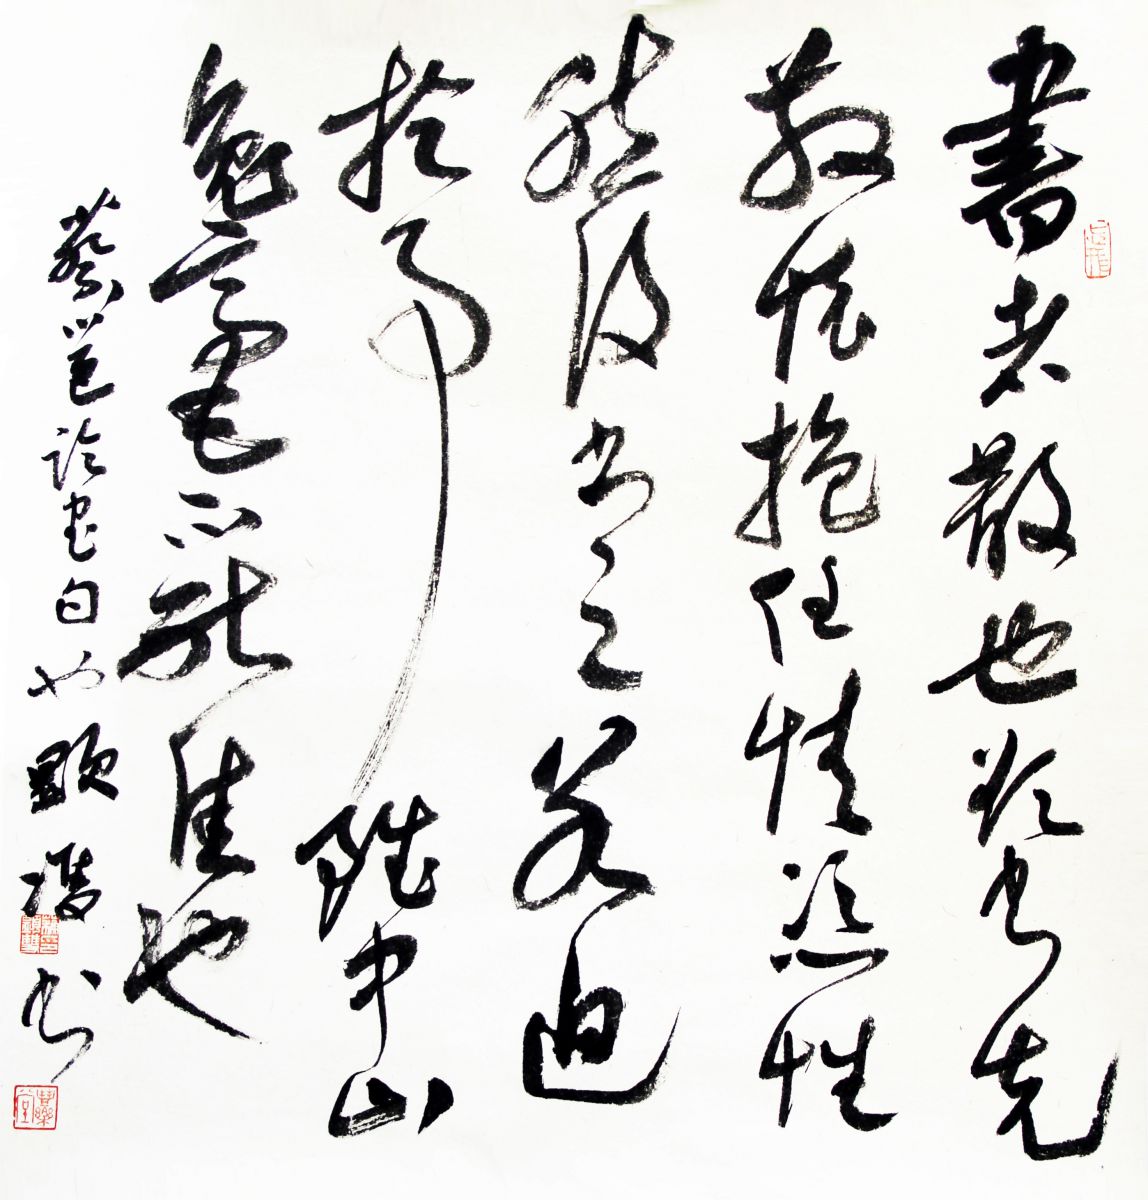 書者散也欲書先
散懷抱任情恣性
然後書之若迫
於事雖中山
兔毫不能佳也
蔡邕論書句 顯 書